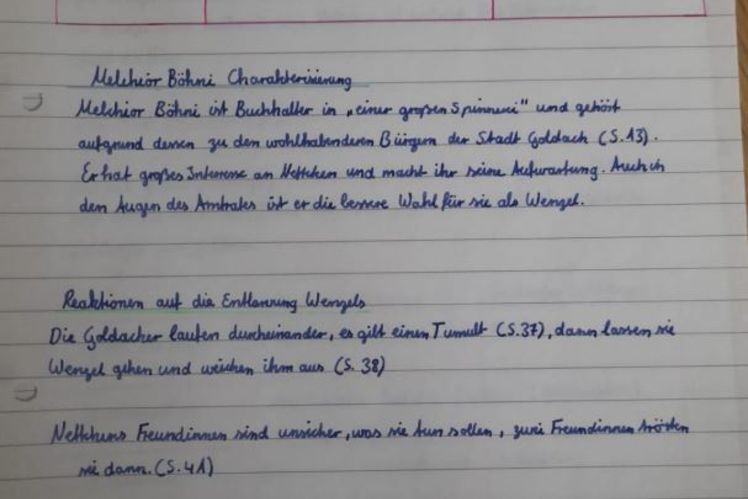 Melchior Böhni Charakterisierung
Melchior Böhni ist Buchhalter in „einer großen Spinnerei" und gehört
aufgrund dessen zu den wohlhabenderen Bürgern der Stadt Goldach (S.13).
Er hat großes Interesse an Nettchen und macht ihr seine Aufwartung. Auch in
den Augen des Amtrates ist er die bessere Wahl für sie als Wenzel.
Reaktionen auf die Entlarvung Wenzels
Die Goldacher laufen durcheinander, es gibt einen Tumult (S.37), dann lassen sie
Wenzel gehen und weichen ihm aus (S. 38)
Nettchens Freundinnen sind unsicher, was sie tun sollen, zwei Freundinnen trösten
sie dann. (S.41)